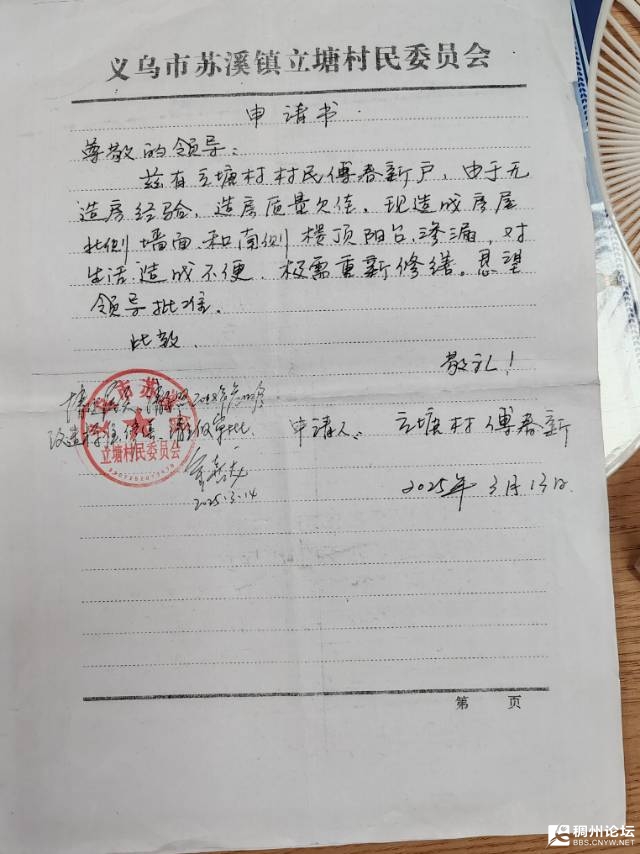 义乌市苏溪镇立塘村民委员会
申请书
尊敬的领导：
兹有立塘村村民傅春新户，由于无
造房经验，造房质量欠佳，现造成房屋
北侧墙面和南侧楼顶阳台渗漏，对
生活造成不便，极需重新修缮。恳望
领导批准。
此致
敬礼！
情况 2018年
改造
立塘村民委员会
2025.3.14
申请人：立塘村 傅春新
2025年3月13日
第 页
稠州论坛
BBS.CNYW.NET